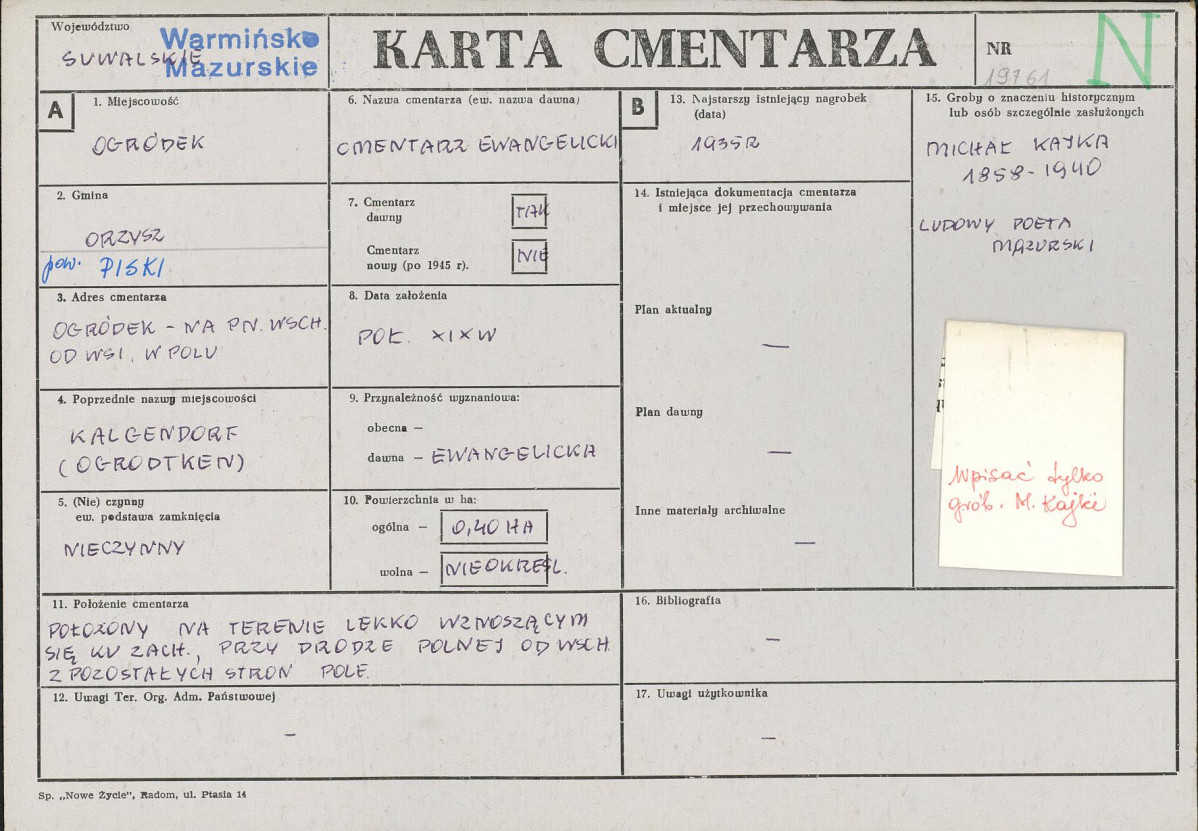 Województwo
SUWALSKIE
Warmińsko
Mazurskie
KARTA CMENTARZA
NR
19761
N
A
1. Miejscowość
OGRÓDEK
2. Gmina
ORZYSZ
pow. PISKI
3. Adres cmentarza
OGRÓDEK – NA PN. WSCH.
OD WSI, W POLU
4. Poprzednie nazwy miejscowości
KALGENDORF
(OGRODTKEN)
5. (Nie) czynny
ew. podstawa zamknięcia
NIECZYNNY
6. Nazwa cmentarza (ew. nazwa dawna)
CMENTARZ EWANGELICKI
7. Cmentarz
dawny
TAK
Cmentarz
nowy (po 1945 r).
NIE
8. Data założenia
POŁ. XIX W
9. Przynależność wyznaniowa:
obecna –
dawna – EWANGELICKA
10. Powierzchnia w ha:
ogólna – 0,40 HA
wolna – NIEOKREŚL.
11. Położenie cmentarza
POŁOŻONY NA TERENIE LEKKO WZNOSZĄCYM
SIĘ KU ZACH., PRZY DRODZE POLNEJ OD WSCH.
Z POZOSTAŁYCH STRON POLE.
12. Uwagi Ter. Org. Adm. Państwowej
–
B
13. Najstarszy istniejący nagrobek
(data)
1935R
14. Istniejąca dokumentacja cmentarza
i miejsce jej przechowywania
Plan aktualny
—
Plan dawny
—
Inne materiały archiwalne
—
15. Groby o znaczeniu historycznym
lub osób szczególnie zasłużonych
MICHAŁ KAJKA
1858-1940
LUDOWY POETA
MAZURSKI
Wpisać tylko
grób. M. Kajki
16. Bibliografia
—
17. Uwagi użytkownika
—
Sp. „Nowe Życie", Radom, ul. Ptasia 14